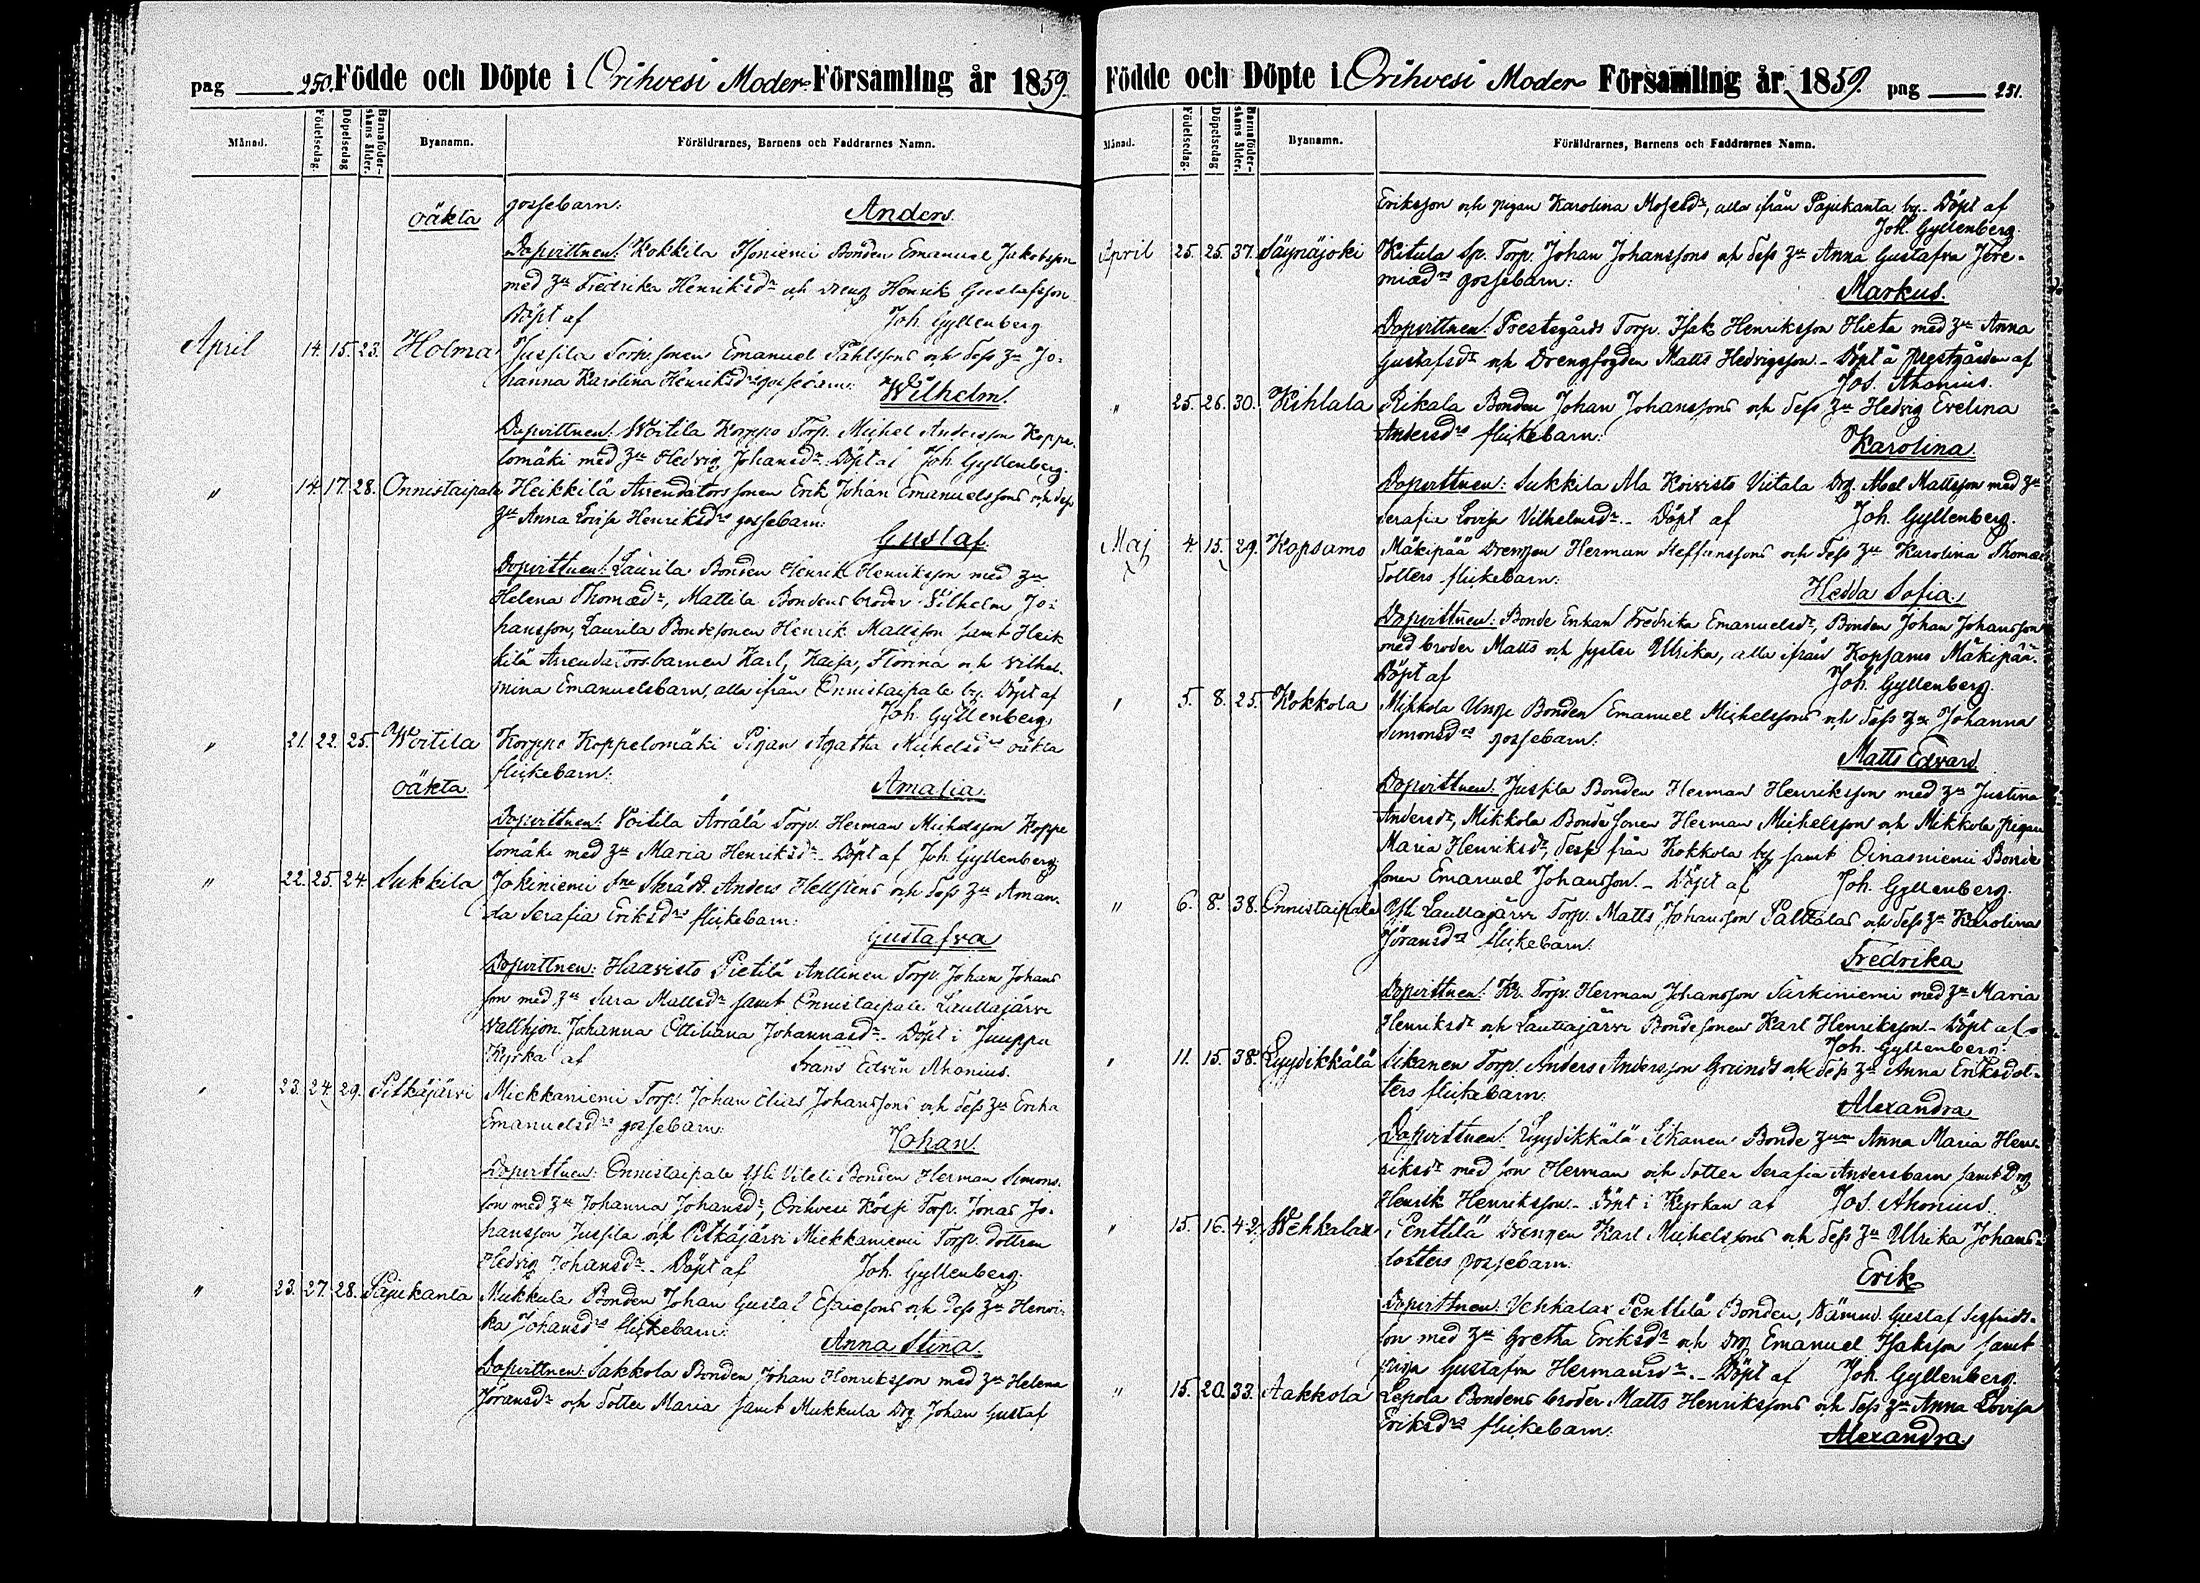 pag 250. Födde och Döpte i Orihvesi Moder Församling år 1859.
Månad. Födelsedag. Döpelsedag Barnaföderskans ålder. Byanamn. Föräldrarnes, Barnens och Faddrarnes Namn.
oäkta gossebarn: Anders.
Dopvittnen: Kokkila Isoniemi Bonden Emanuel Jakobsson
med Hu Fredrika Henriksdr och dreng Henrik Gustafsson
Döpt af Joh. Gyllenberg
April 14. 15. 23. Holma Jussila Torp. sonen Emanuel Påhlssons och dess Hu Jo-
hanna Karolina Henriksdrs gossebarn: Wilhelm.
Dopvittnen: Woitila Korppo Torp. Michel Andersson Koppe-
lomäki med Hu Hedvig Johansdr. Döpt af Joh. Gyllenberg.
" 14. 17. 28. Onnistaipale Heikkilä Arrendators sonen Erik Johan Emanuelssons och dess
Hu Anna Lovisa Henriksdrs gossebarn:
Gustaf
Dopvittnen: Laurila Bonden Henrik Henriksson med Hu
Helena Thomædr, Mattila Bondens broder Vilhelm Jo-
hansson, Laurila Bondesonen Henrik Mattsson samt Heik
kilä Arrendatorsbarnen Karl, Kaisa, Florina och Vilhel-
mina Emanuelsbarn, alla ifrån Onnistaipale by. Döpt af
Joh. Gyllenberg
" 21. 22. 25. Woitila Korppo Koppelomäki Pigan Agatha Michelsdrs oäkta
flickebarn:
oäkta Amalia.
Dopvittnen: Voitila Ärrälä Torp. Herman Michelsson Koppe
lomäki med Hu Maria Henriksdr. Döpt af Joh. Gyllenberg.
" 22. 25. 24. Sukkila Jokiniemi Skrädd. Anders Hellstens och dess Hu Aman-
da Serafia Eriksdrs flickebarn:
Gustafva
Dopvittnen: Haavisto Pietilä Anttinen Torp. Johan Johans
son med Hu Sara Mattsdr samt Onnistaipale Lauttajärvi
Vallhjon Johanna Ottiliana Johannasdr. Döpt i Juuppu
Kyrka af Frans Edvin Ahonius.
" 23. 24. 29. Pitkäjärvi Miekkaniemi Torp. Johan Elias Johanssons och dess Hu Erika
Emanuelsdrs gossebarn:
Johan.
Dopvittnen: Onnistaipale Yli Vitali Bonden Herman Simons-
son med Hu Johanna Johansdr, Orihvesi Torp. Jonas Jo-
hansson Jussila och Pitkäjärvi Miekkaniemi Torp. dottren
Hedvig Johansdr. Döpt af Joh. Gyllenberg.
" 23. 27. 28. Pajukanta Mukkula Bonden Johan Gustaf Esaiæsons och dess Hu Henri-
ka Johansdrs flickebarn:
Anna Stina.
Dopvittnen: Sakkola Bonden Johan Henriksson med Hu Helena
Jöransdr och dotter Maria samt Mukkula Drg Johan Gustaf
Födde och Döpte i Orihvesi Moder Församling år 1859. pag 251.
Månad. Födelsedag. Döpelsedag Barnaföderskans ålder. Byanamn. Föräldrarnes, Barnens och Faddrarnes Namn.
Eriksson och pigan Karolina Mosesdr, alla ifrån Pajukanta by. Döpt af
Joh. Gyllenberg.
April 25. 25. 37. Säynäjoki Kitula Sp. Torp. Johan Johanssons och dess Hu Anna Gustafva Jere-
miædrs gossebarn:
Markus.
Dopvittnen: Prestegårds Torp. Isak Henriksson Hieta med Hu Anna
Gustafsdr och Drengfogden Matts Hedvigsson. Döpt å prestgården af
Jos. Ahonius.
" 25. 26. 30. Kihlala Rikala Bonden Johan Johanssons och dess Hu Hedvig Evelina
Andersdrs flickebarn:
Karolina.
Dopvittnen: Sukkila Ala Koivisto Viitala Drg. Abel Mattsson med Hu
Serafia Lovisa Vilhelmsdr. Döpt af Joh. Gyllenberg.
Maj 4. 15. 29. Kopsamo Mäkipää Drengen Herman Steffanssons och dess Hu Karolina Thomæ
dotters flickebarn:
Hedda Sofia.
Dopvittnen: Bonde Enkan Fredrika Emanuelsdr, Bonden Johan Johansson
med broder Matts och syster Ulrika, alla ifrån Kopsamo Mäkipää.
Döpt af Joh. Gyllenberg.
" 5. 8. 25. Kokkola Mikkola Bonden Emanuel Michelssons och dess Hu Johanna
Simonsdrs gossebarn:
Matts Edvard
Dopvittnen: Jussila Bonden Herman Henriksson med Hu Justina
Andersdr, Mikkola Bonde sonen Herman Michelsson och Mikkola pigan
Maria Henriksdr, desse från Kokkola by samt Oinasniemi Bonde
sonen Emanuel Johansson. Döpt af Joh. Gyllenberg.
" 6. 8. 38. Onnistaipale Yli Lauttajärvi Torp. Matts Johansson Paltalas och dess Hu Karolina
Jöransdrs flickebarn:
Fredrika
Dopvittnen: Kr. Torp. Herman Johansson Särkiniemi med Hu Maria
Henriksdr och Lauttajärvi Bonde sonen Karl Henriksson. Döpt af
Joh. Gyllenberg.
" 11. 15. 38. Lyydikkälä Sikanen Torp. Anders Andersson Grunds och dess Hu Anna Eriksdot-
ters flickebarn.
Alexandra
Dopvittnen: Lyydikkälä Sikanen Bonde Hun Anna Maria Hen-
riksdr med son Herman och dotter Serafia Andersbarn samt Drg
Henrik Henriksson. Döpt i Kyrkan af Jos. Ahonius.
" 15. 16. 42. Wehkalax Penttilä Drengen Karl Michelssons och dess Hu Ulrika Johans-
dotters gossebarn:
Erik
Dopvittnen: Vehkalax Penttilä Bonden, Nämnd. Gustaf Sigfrids-
son med Hu Gretha Eriksdr och drg Emanuel Isaksson samt
piga Gustafva Hermansdr. Döpt af Joh. Gyllenberg.
" 15. 20. 33. Aakkola Lepola Bondens broder Matts Henrikssons och dess Hu Anna Lovisa
Eriksdrs flickebarn:
Alexandra